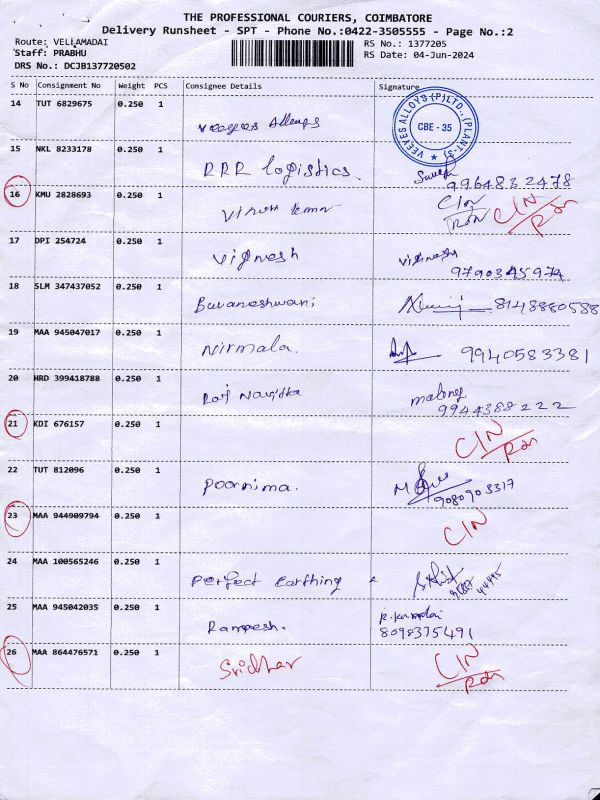 THE PROFESSIONAL COURIERS, COIMBATORE
Delivery Runsheet - SPT - Phone No.:0422-3505555 - Page No.:2
Route: VELLAMADAI
Staff: PRABHU
DRS No.: DCJB137720502
RS No.: 1377205
RS Date: 04-Jun-2024
S No Consignment No Weight PCS Consignee Details Signature
14 TUT 6829675 0.250 1
VEEYES ALLOYS (P) LTD., (PLANT-3) CBE - 35
15 NKL 8233178 0.250 1 RRR logistics. 9964832478
16 KMU 2828693 0.250 1 CIN CIN
17 DPI 254724 0.250 1 Vignesh 9790345974
18 SLM 347437052 0.250 1 Buvaneshwari 8148880588
19 MAA 945047017 0.250 1 Nirmala. 9940583381
20 HRD 399418788 0.250 1 9944388222
21 KDI 676157 0.250 1 CIN
22 TUT 812096 0.250 1 Poornima. 9080903317
23 MAA 944909794 0.250 1 CIN
24 MAA 100565246 0.250 1 Perfect Earthing
25 MAA 945042035 0.250 1 8098375491
26 MAA 864476571 0.250 1 Sridhar CIN